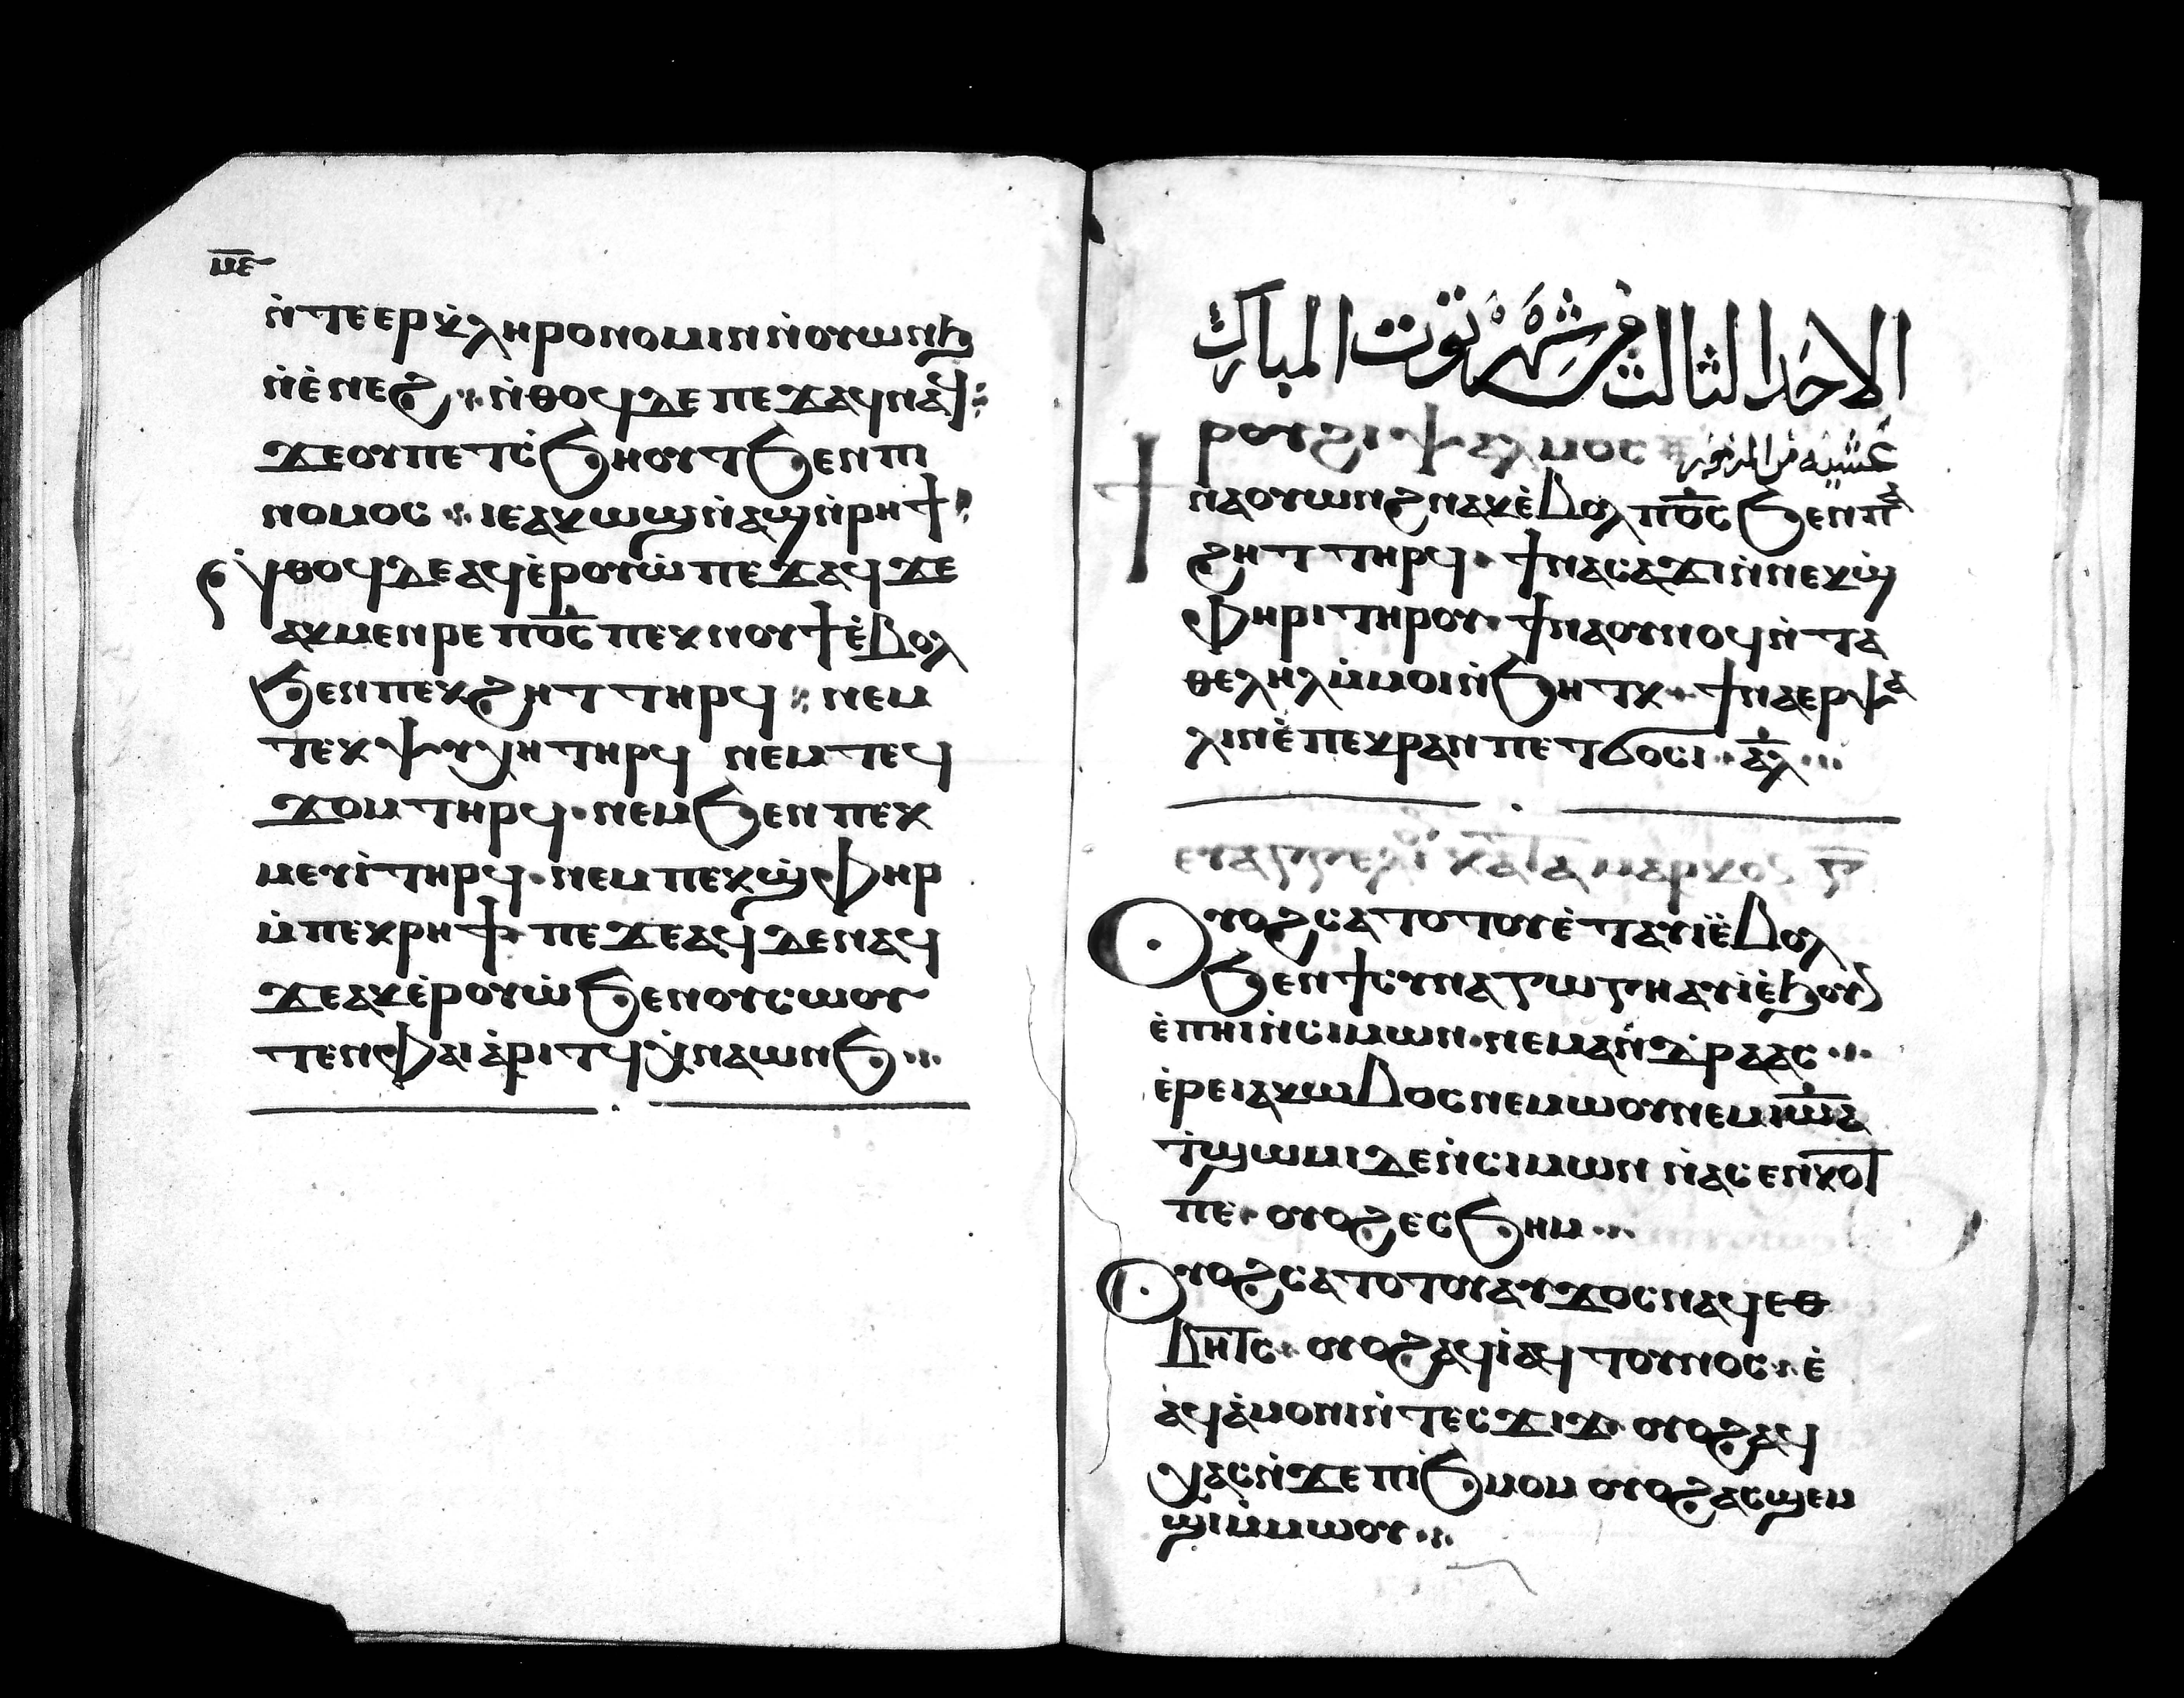 ⲙⲉ
ⲛ̇ⲧⲉⲉⲣⲕ̇ⲗⲏⲣⲟⲛⲟⲙⲓⲛ ⲛ̇ⲟⲩⲱⲛϧ
ⲛ̇ⲉ̇ⲛⲉϩ ⁘ ⲛ̇ⲑⲟϥ ⲇⲉ ⲡⲉϫⲁϥ ⲛⲁϥ ⁘
ϫⲉ ⲟⲩ ⲡⲉⲧⲥ̇ϧⲏⲟⲩⲧ ϧⲉⲛ ⲡⲓ
ⲛⲟⲙⲟⲥ ⁘ ⲓⲉ ⲁⲕⲱϣ ⲛ̇ⲁϣ ⲛ̇ⲣⲏϯ
ⲛ̇ⲑⲟϥ ⲇⲉ ⲁϥⲉ̇ⲣⲟⲩⲱ̇ ⲡⲉϫⲁϥ ϫⲉ
ⲁⲕⲙⲉⲛⲣⲉ ⲡⲟ̅ⲥ̅ ⲡⲉⲕⲛⲟⲩϯ ⲉ̇ⲃⲟⲗ
ϧⲉⲛ ⲡⲉⲕϩⲏⲧ ⲧⲏⲣϥ ⁘ ⲛⲉⲙ
ⲧⲉⲕⲯⲩⲭⲏ ⲧⲏⲣϥ ⲛⲉⲙ ⲧⲉϥ
ϫⲟⲙ ⲧⲏⲣϥ · ⲛⲉⲙ ϧⲉⲛ ⲡⲉⲕ
ⲙⲉⲩⲓ̇ ⲧⲏⲣϥ · ⲛⲉⲙ ⲡⲉⲕϣ̇ⲫⲏⲣ
ⲙ̇ⲡⲉⲕⲣⲏϯ · ⲡⲉϫⲉ ⲁϥ ⲇⲉ ⲛⲁϥ
ϫⲉ ⲁⲕⲉ̇ⲣⲟⲩⲱ̇ ϧⲉⲛ ⲟⲩⲥⲱⲟⲩ
ⲧⲉⲛ ⲫⲁⲓ ⲁ̇ⲣⲓⲧϥ ⲭ̇ⲛⲁⲱⲛϧ ⁘
الاحد الثالث من شهر توت المبارك
ⲣⲟⲩϩⲓ ⲯⲁⲗⲙⲟⲥ عشية من المزمور
ϯⲛⲁⲟⲩⲱⲛϩ ⲛⲁⲕ ⲉ̇ⲃⲟⲗ ⲡⲟ̅ⲥ̅ ϧⲉⲛ ⲡⲁ
ϩⲏⲧ ⲧⲏⲣϥ · ϯⲛⲁⲥⲁϫⲓ ⲛ̇ⲛⲉⲕϣ̇
ⲫⲏⲣⲓ ⲧⲏⲣⲟⲩ · ϯⲛⲁⲟⲩⲛⲟϥ ⲛ̇ⲧⲁ
ⲑⲉⲗⲏⲗ ⲙ̇ⲙⲟⲓ ⲛ̇ϧⲏⲧⲕ · ϯⲛⲁⲉⲣⲯⲁ
ⲗⲓⲛ ⲉ̇ⲡⲉⲕⲣⲁⲛ ⲡⲉⲧϭⲟⲥⲓ · ⲁⲗ̅ ⁘
ⲉⲩⲁⲅⲅⲉⲗⲓ ⲕⲁⲧⲁ ⲙⲁⲣⲕⲟⲥ
Ⲟⲩⲟϩ ⲥⲁⲧⲟⲧⲟⲩ ⲉ̇ⲧⲁⲩⲓ̇ ⲉ̇ⲃⲟⲗ
ϧⲉⲛ ϯⲥⲩⲛⲁⲅⲱⲅⲏ ⲁⲩⲓ̇ ⲉ̇ϧⲟⲩⲛ
ⲉ̇ⲡⲏⲓ ⲛ̇ⲥⲓⲙⲱⲛ · ⲛⲉⲙ ⲁⲛⲇⲣⲉⲁⲥ ⁘
ⲉ̇ⲣⲉ ⲓⲁⲕⲱⲃⲟⲥ ⲛⲉⲙⲱⲟⲩ ⲛⲉⲙ ⲓⲱ̅ⲁ̅
ⲧ̇ϣⲱⲙⲓ ⲇⲉ ⲛ̇ⲥⲓⲙⲱⲛ ⲛⲁⲥⲉⲛⲕⲟⲧ
ⲡⲉ · ⲟⲩⲟϩ ⲉⲥϧⲏⲙ ⁘
Ⲟⲩⲟϩ ⲥⲁⲧⲟⲧⲟⲩ ⲁⲩϫⲟⲥ ⲛⲁϥ ⲉⲑ
ⲃⲏⲧⲥ · ⲟⲩⲟϩ ⲁϥⲓ̇ ⲁϥⲧⲟⲩⲛⲟⲥ · ⲉ̇
ⲁϥⲁ̇ⲙⲟⲛⲓ ⲛ̇ⲧⲉⲥϫⲓϫ ⲟⲩⲟϩ ⲁϥ
ⲭⲁⲥ ⲛ̇ϫⲉ ⲡⲓϧⲙⲟⲙ ⲟⲩⲟϩ ⲁⲥϣⲉⲙ
ϣⲓ ⲙ̇ⲙⲱⲟⲩ ⁘